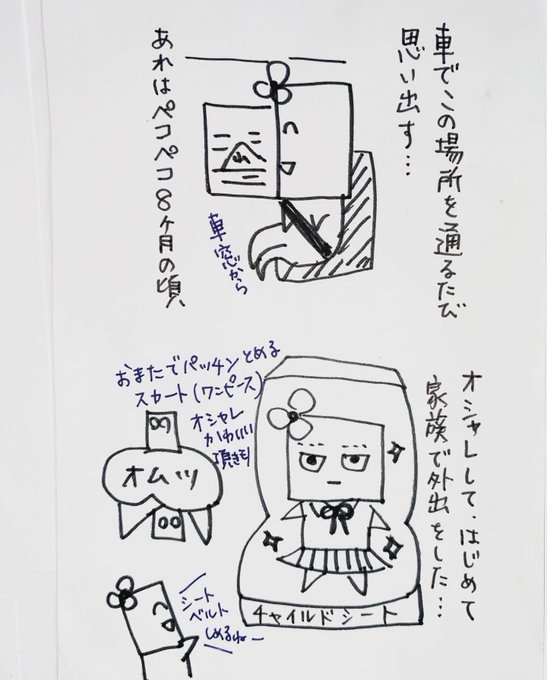 車でこの場所を通るたび
思い出す…
あれはペコペコ8ヶ月の頃、
山
車窓から
オシャレして、はじめて
家族で外出をした…
おまたでパッチンとめる
スカート(ワンピース)
オシャレ
かわいい
オムツ
チャイルドシート
シート
ベルト
しめるねー